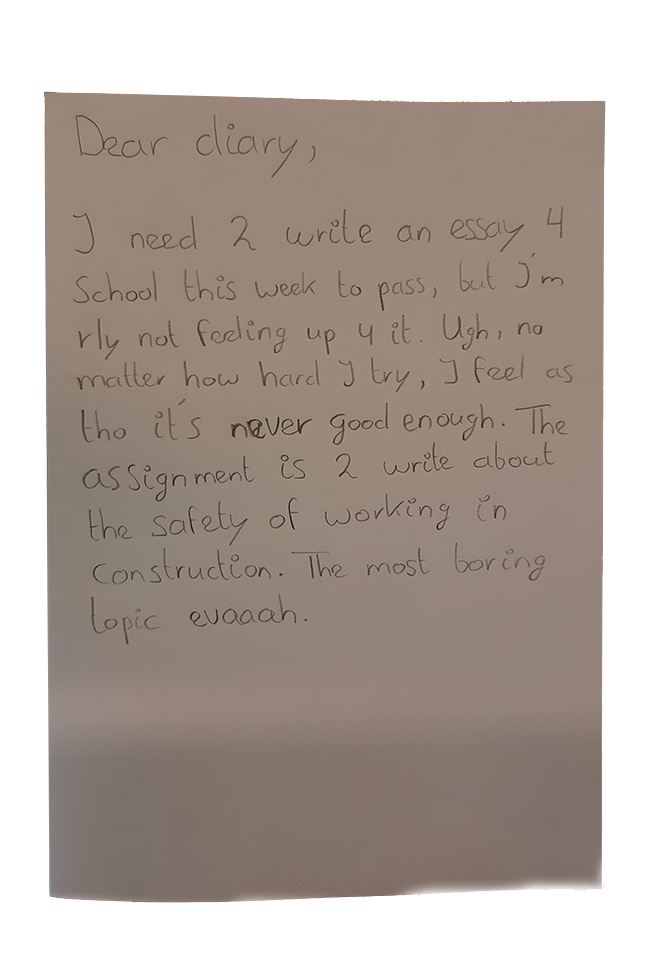 Dear diary,
I need 2 write an essay 4
School this week to pass, but I'm
rly not feeling up 4 it. Ugh, no
matter how hard I try, I feel as
tho it's never good enough. The
assignment is 2 write about
the safety of working in
construction. The most boring
topic evaaah.